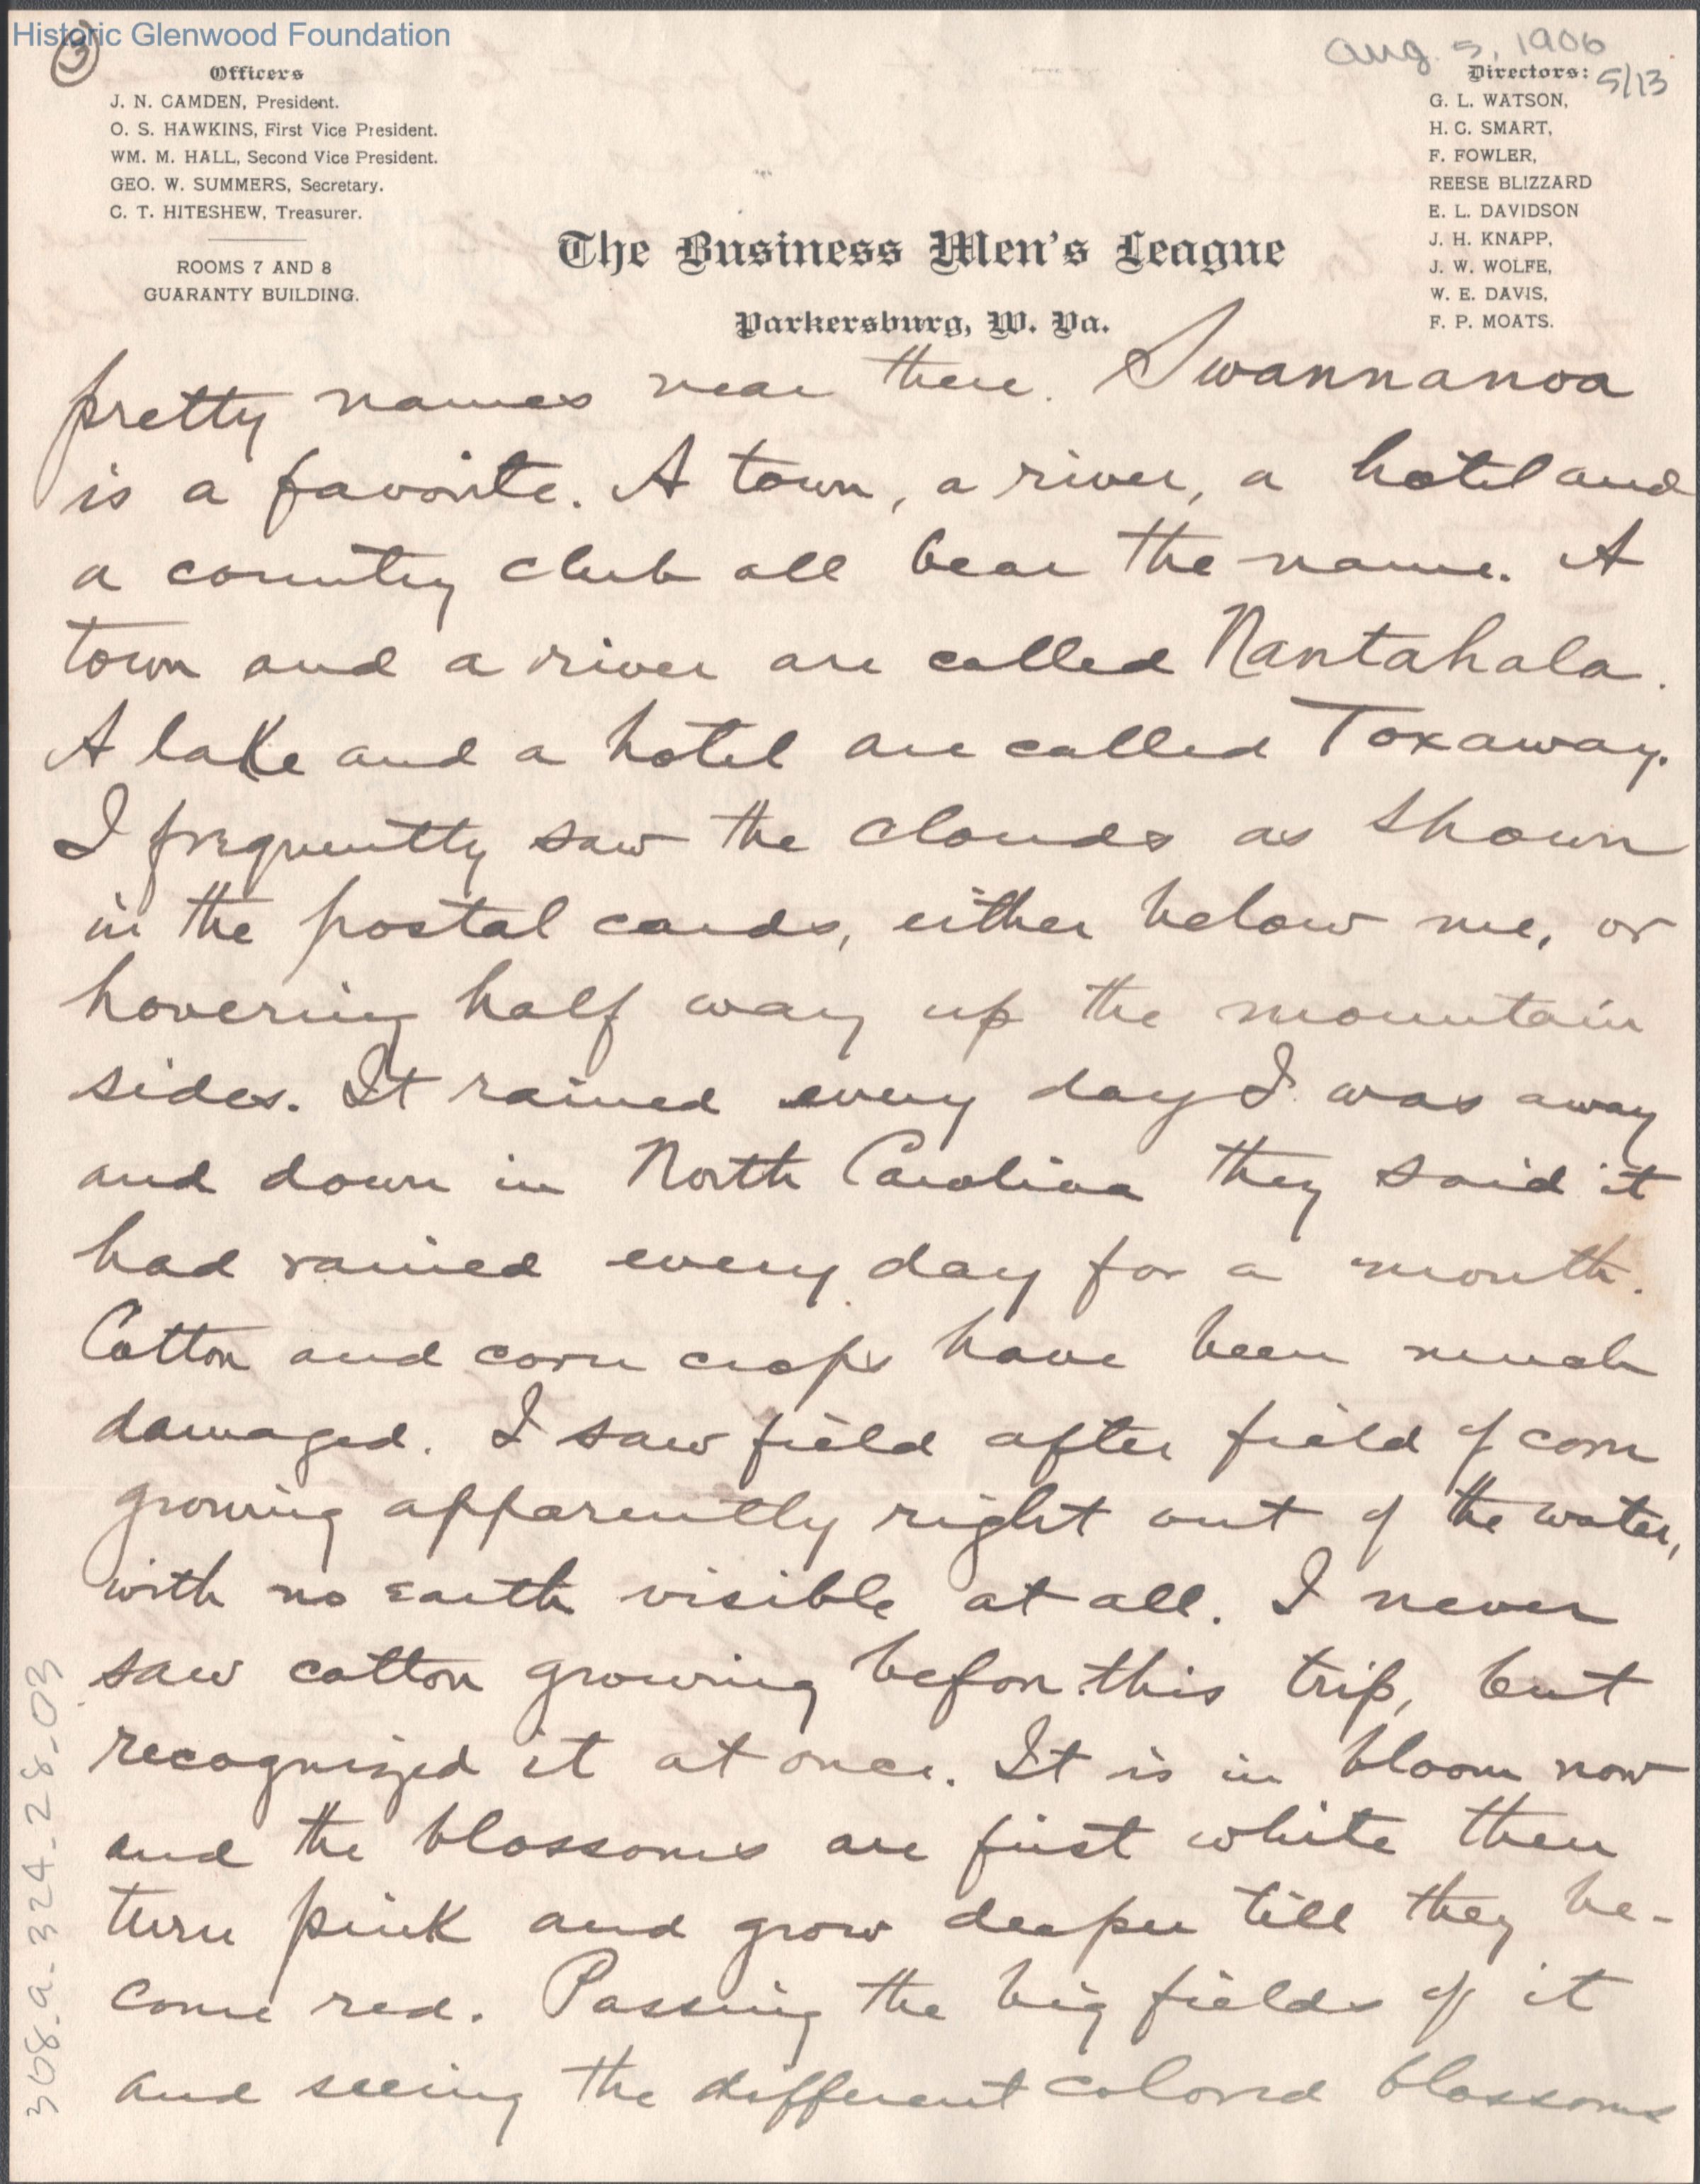 Historic Glenwood Foundation
3
Aug. 5, 1906
5/13
Officers
J. N. CAMDEN, President.
O. S. HAWKINS, First Vice President.
WM. M. HALL, Second Vice President.
GEO. W. SUMMERS, Secretary.
C. T. HITESHEW, Treasurer.
ROOMS 7 AND 8
GUARANTY BUILDING.
Directors:
G. L. WATSON,
H. C. SMART,
F. FOWLER,
REESE BLIZZARD
E. L. DAVIDSON
J. H. KNAPP,
J. W. WOLFE,
W. E. DAVIS,
F. P. MOATS.
The Business Men's League
Parkersburg, W. Va.
pretty names near there. Swannanoa
is a favorite. A town, a river, a hotel and
a country club all bear the name. A
town and a river are called Nantahala.
A lake and a hotel are called Toxaway.
I frequently saw the clouds as shown
in the postal cards, either below me, or
hovering half way up the mountain
sides. It rained every day I was away
and down in North Carolina they said it
had rained every day for a month.
Cotton and corn crops have been much
damaged. I saw field after field of corn
growing apparently right out of the water,
with no earth visible at all. I never
saw cotton growing before this trip, but
recognized it at once. It is in bloom now
and the blossoms are first white then
turn pink and grow deeper till they be-
come red. Passing the big fields of it
and seeing the different colored blossoms
368.a.324.28.03